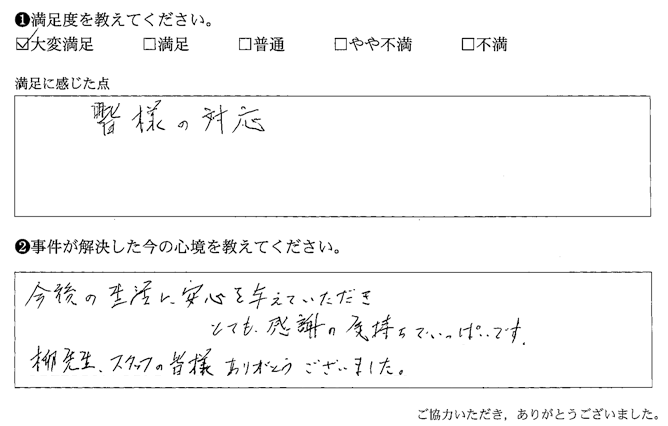 ❶満足度を教えてください。
☑大変満足 □満足 □普通 □やや不満 □不満
満足に感じた点
皆様の対応
❷事件が解決した今の心境を教えてください。
今後の生活に安心を与えていただき
とても感謝の気持ちでいっぱいです。
柳先生、スタッフの皆様ありがとうございました。
ご協力いただき，ありがとうございました。